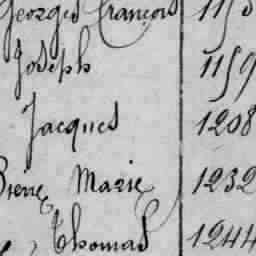 Georges François 115
Joseph 1159
Jacques 1208
Pierre Marie 1232
Thomas 1244